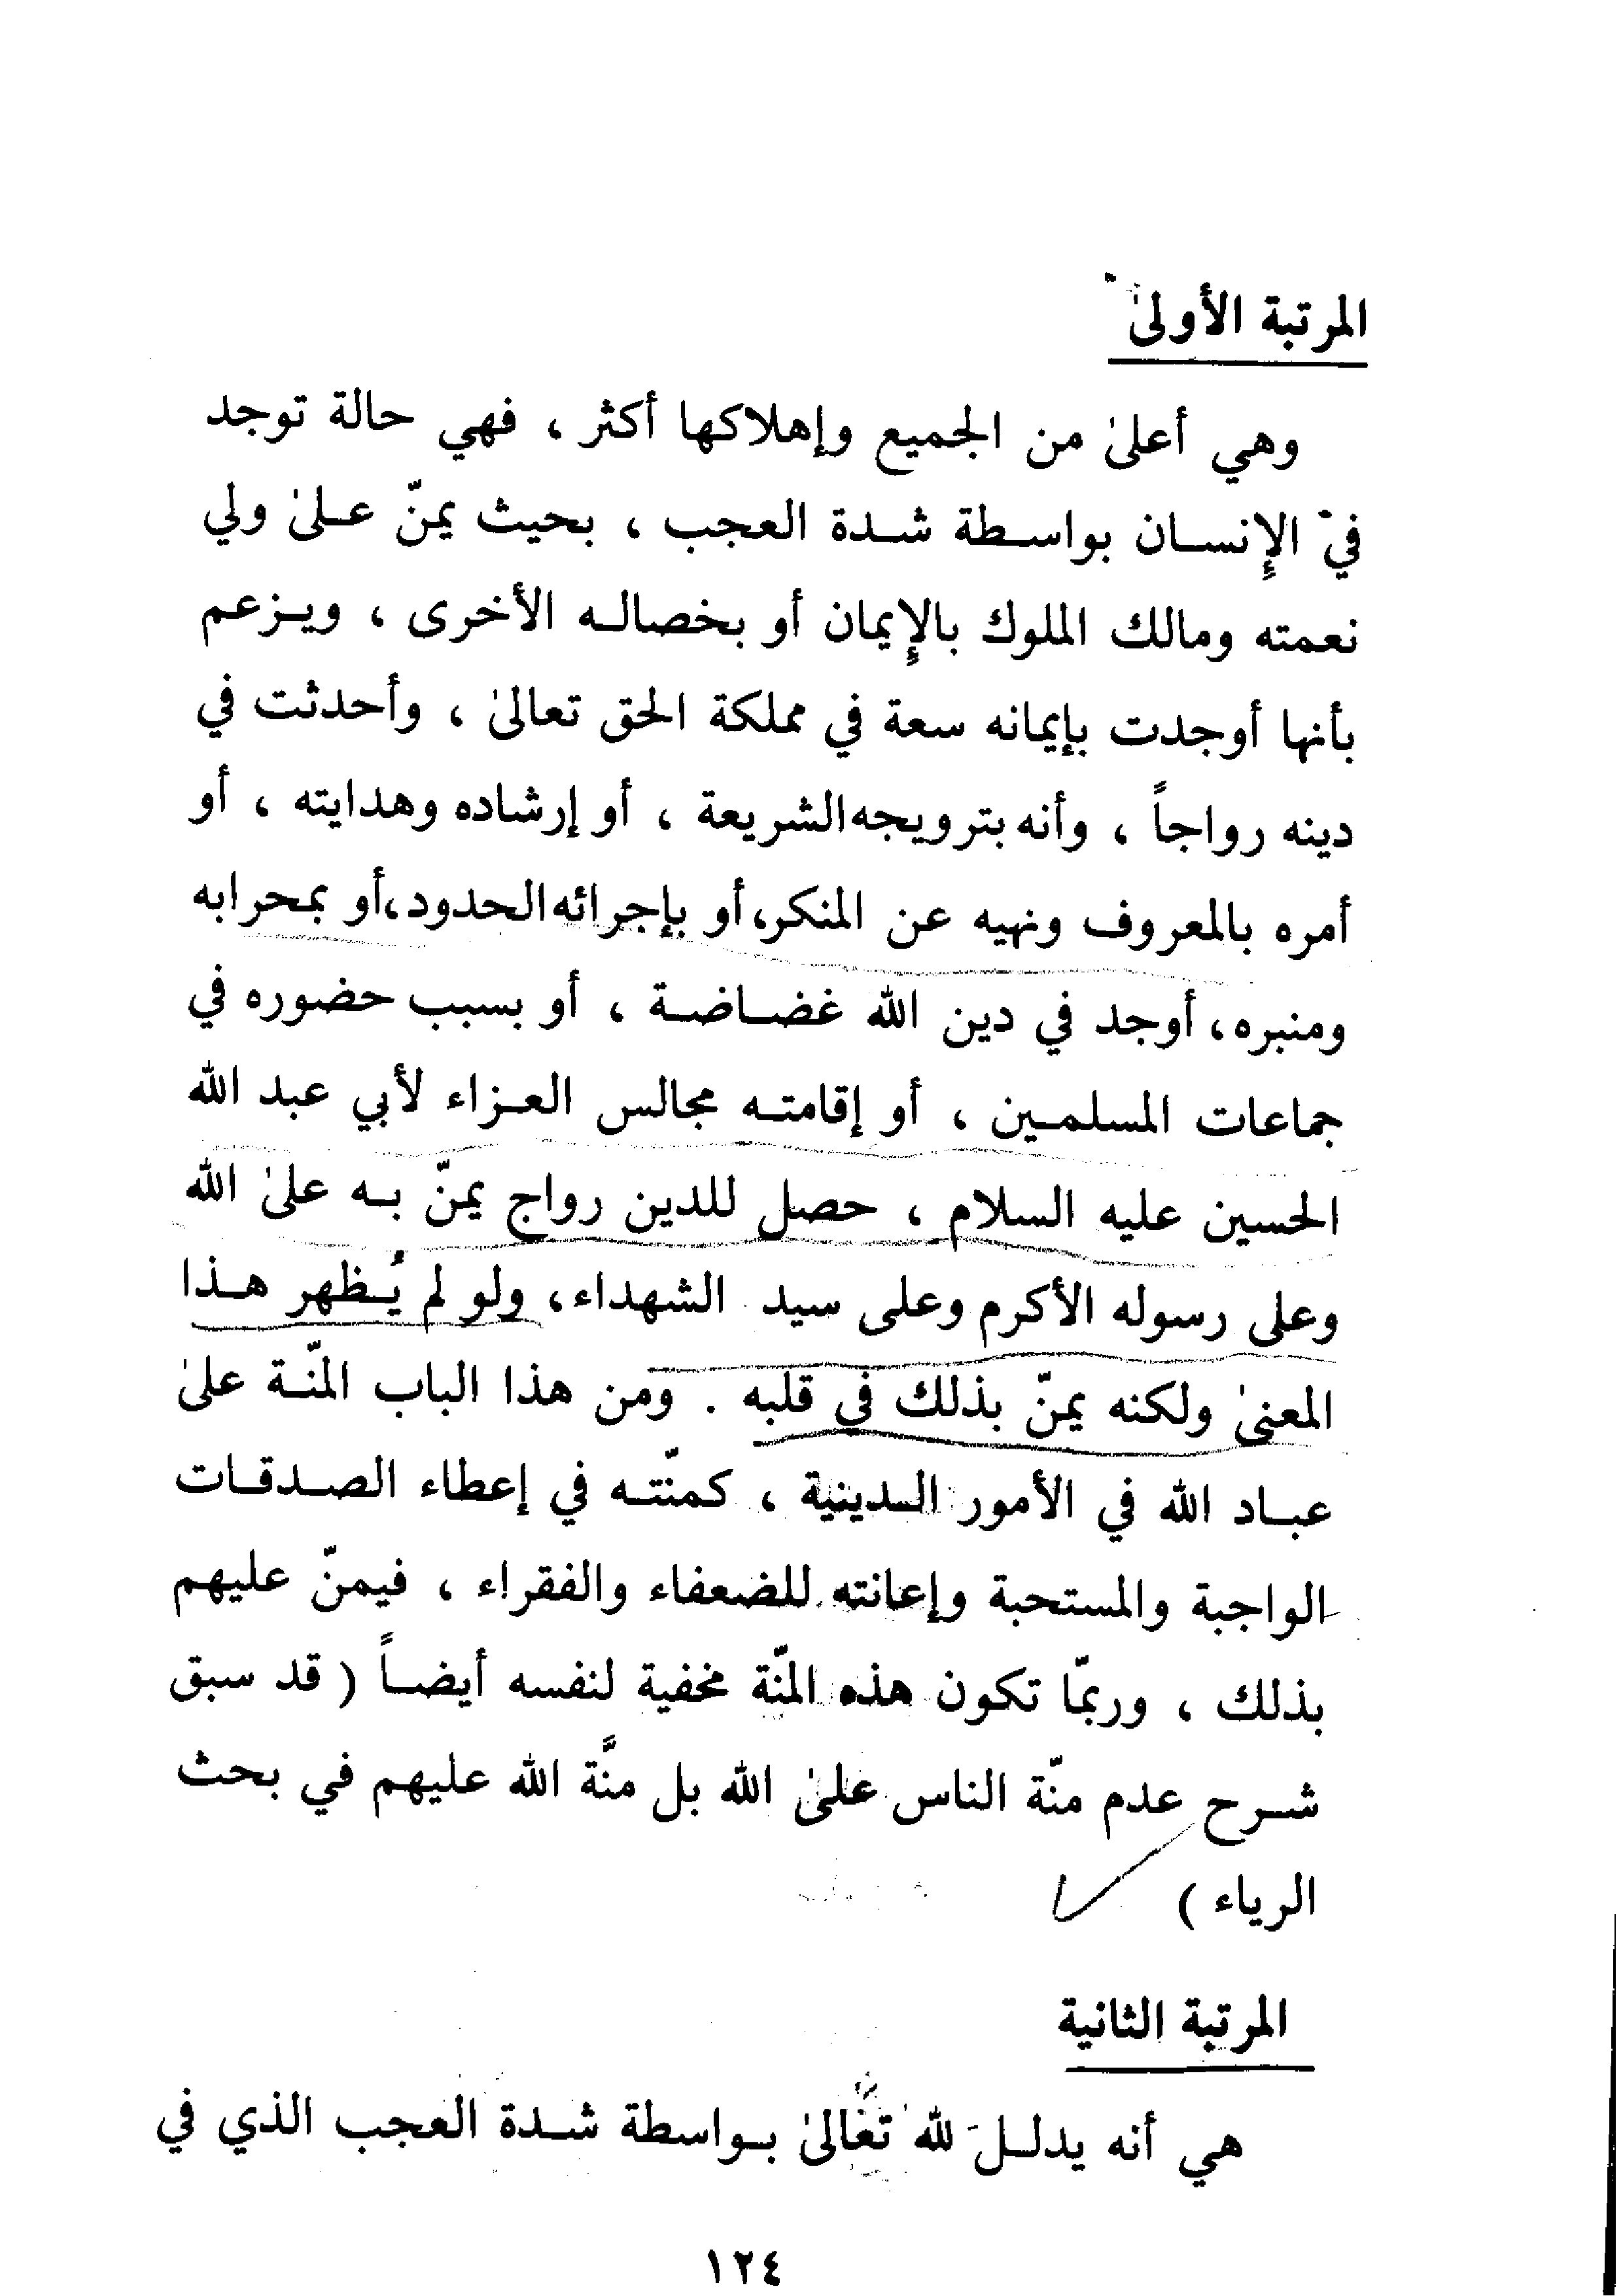 المرتبة الأولىٰ
وهي أعلىٰ من الجميع وإهلاكها أكثر ، فهي حالة توجد
في الإِنسـان بواسـطة شـدة العجب ، بحيث يمنّ عـلىٰ ولي
نعمته ومالك الملوك بالإِيمان أو بخصالـه الأخرى ، ويـزعم
بأنها أوجدت بإيمانه سعة في مملكة الحق تعالىٰ ، وأحدثت في
دينه رواجاً ، وأنه بترويجه الشريعة ، أو إرشاده وهدايته ، أو
أمره بالمعروف ونهيه عن المنكر، أو بإجرائه الحدود، أو بمحرابه
ومنبره، أوجد في دين الله غضـاضـة ، أو بسبب حضوره في
جماعات المسلمـين ، أو إقامتـه مجالس العـزاء لأبي عبد الله
الحسين عليه السلام ، حصل للدين رواج يمنّ بـه علىٰ الله
وعلى رسوله الأكرم وعلى سيد الشهداء، ولو لم يُـظهر هـذا
المعنىٰ ولكنه يمنّ بذلك في قلبه . ومن هذا الباب المنّـة علىٰ
عبـاد الله في الأمور الـدينية ، كمنّتـه في إعطاء الصـدقـات
الواجبة والمستحبة وإعانته للضعفاء والفقراء ، فيمنّ عليهم
بذلك ، وربمّا تكون هذه المنّة مخفية لنفسه أيضـاً ( قد سبق
شـرح عدم منّة الناس علىٰ الله بل منَّة الله عليهم في بحث
الرياء )
المرتبة الثانية
هي أنه يدلـل لله تعالىٰ بـواسطة شـدة العجب الذي في
١٢٤